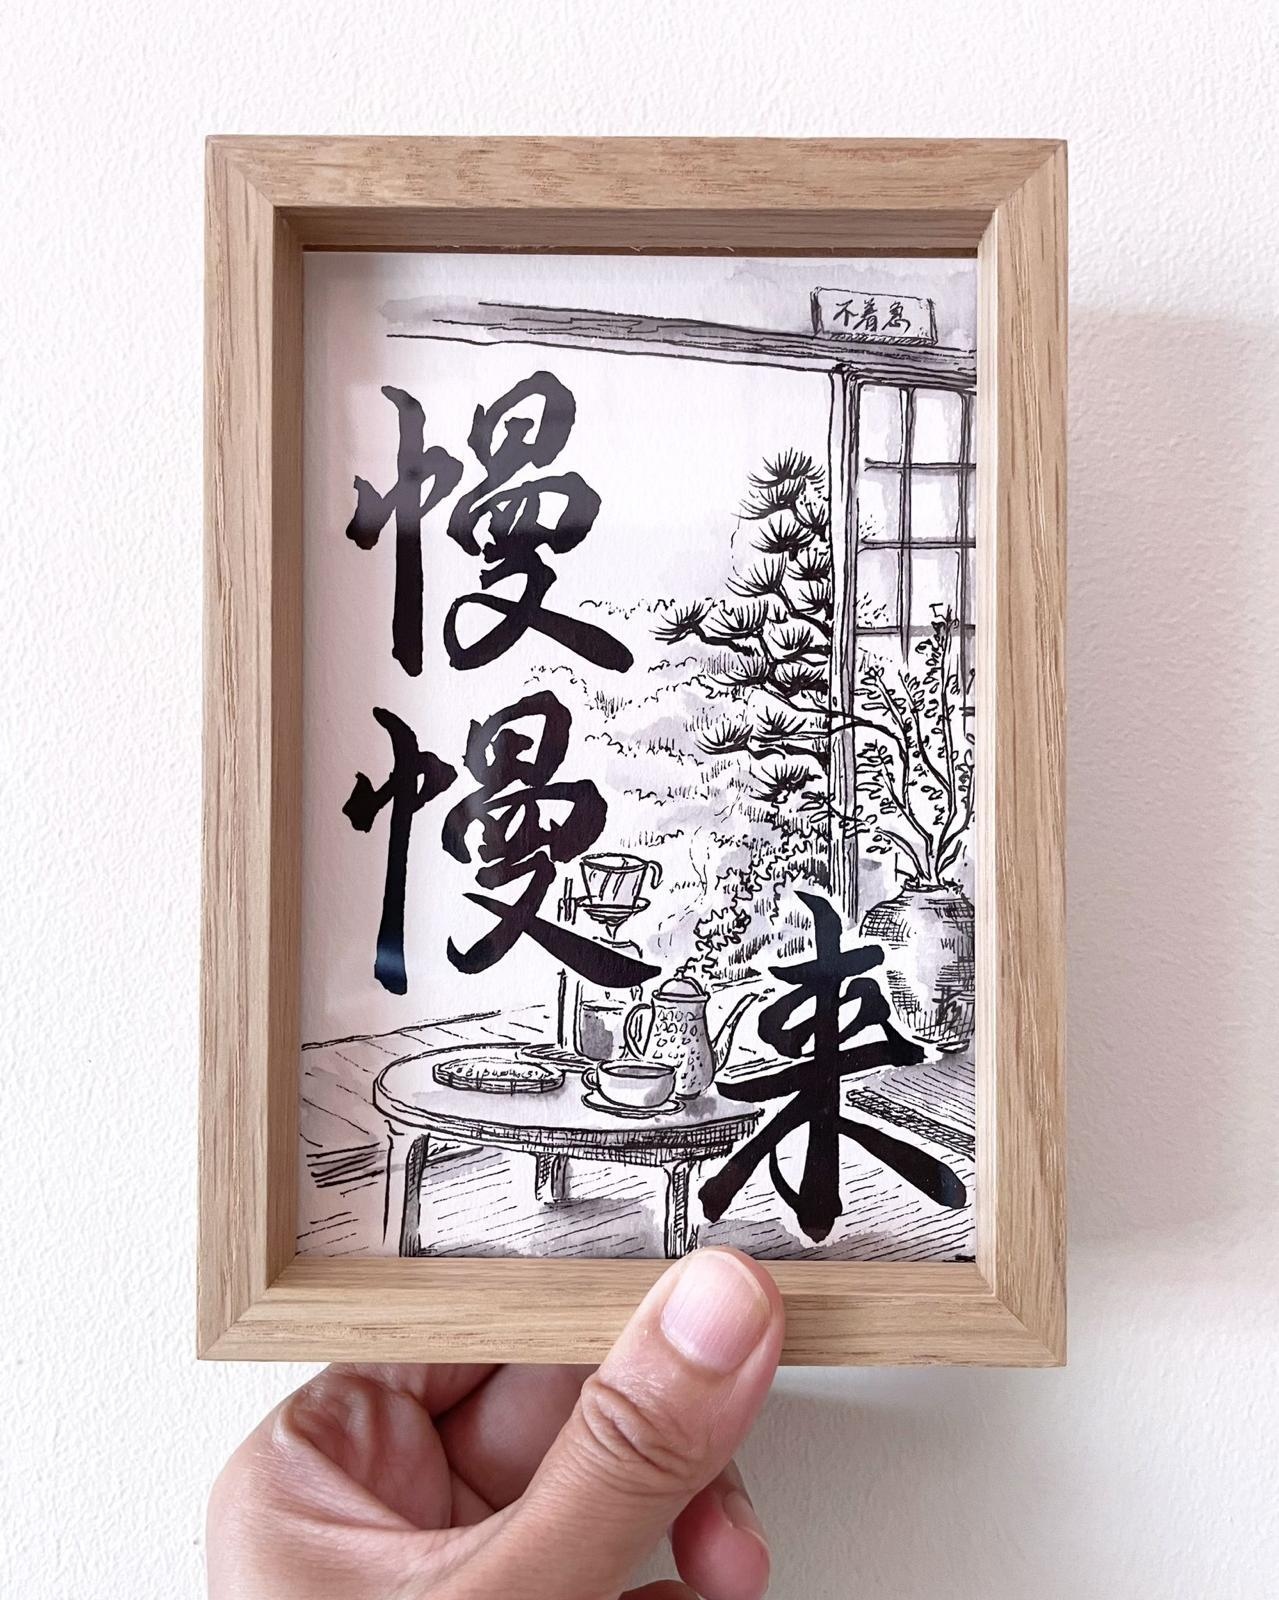 慢
慢
来
不着急